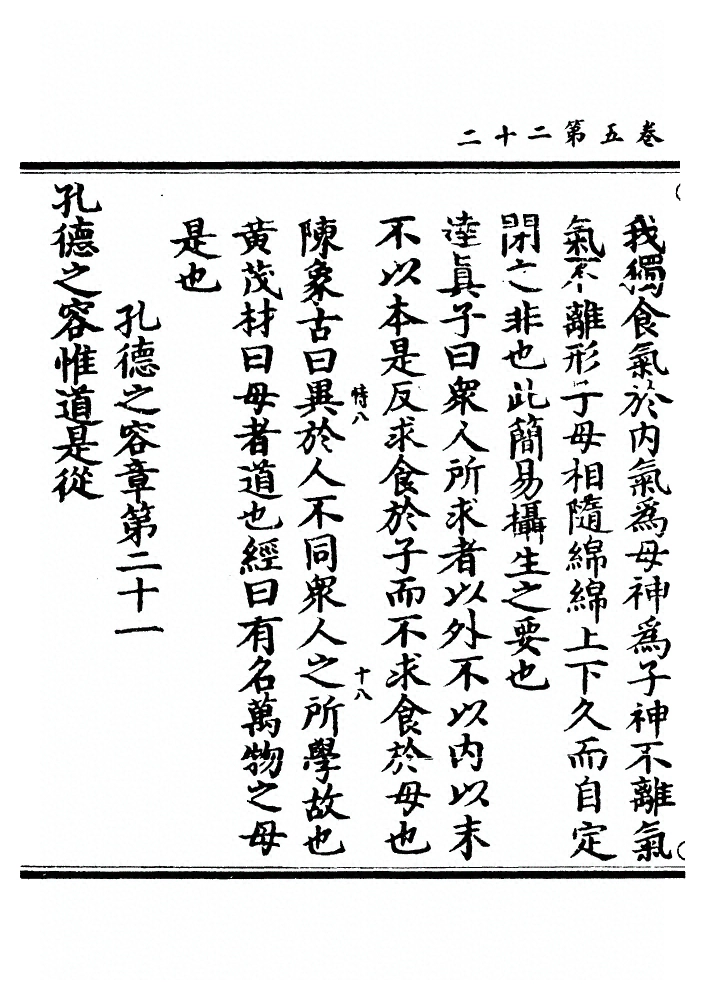 卷五第二十二
我獨食氣於内氣爲母神爲子神不離氣
氣不離形子母相隨綿綿上下久而自定
閉之非也此簡易攝生之要也
逵眞子曰衆人所求者以外不以内以末
不以本是反求食於子而不求食於母也
恃八
十八
陳象古曰異於人不同衆人之所學故也
黄茂材曰母者道也經曰有名萬物之母
是也
孔德之容章第二十一
孔德之容惟道是從